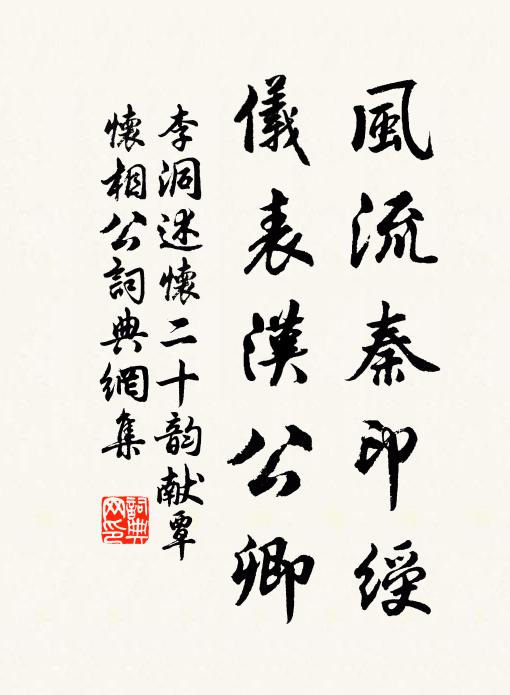 風流秦印綬
儀表漢公卿
李洞述懷二十韵献覃
懷相公詞典網集
詞典网印